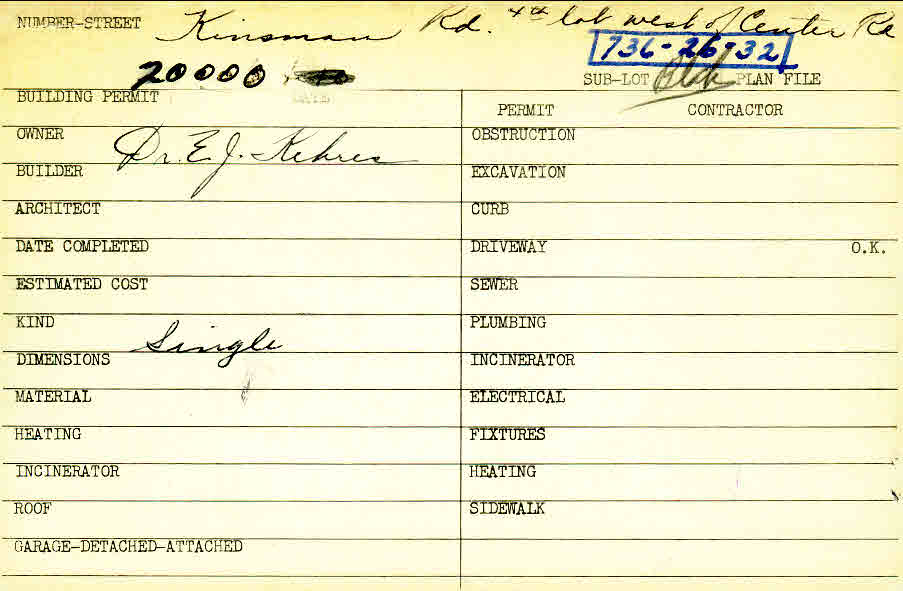 NUMBER-STREET Kinsman Rd. 4th lot west of Center Rd
736-26-32
20000
SUB-LOT PLAN FILE
DATE
BUILDING PERMIT
PERMIT CONTRACTOR
OWNER Dr. E. J. Kehres
OBSTRUCTION
BUILDER
EXCAVATION
ARCHITECT
CURB
DATE COMPLETED
DRIVEWAY O.K.
ESTIMATED COST
SEWER
KIND Single
PLUMBING
DIMENSIONS
INCINERATOR
MATERIAL
ELECTRICAL
HEATING
FIXTURES
INCINERATOR
HEATING
ROOF
SIDEWALK
GARAGE-DETACHED-ATTACHED